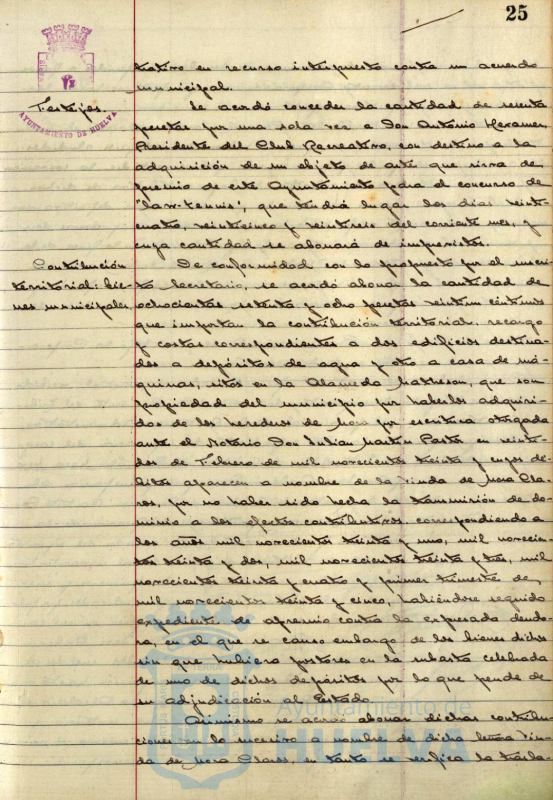 25
trativo en recurso interpuesto contra un acuerdo
municipal.
Festejos.
AYUNTAMIENTO DE HUELVA
Se acordó conceder la cantidad de sesenta
pesetas por una sola vez a Don Antonio
Presidente del Club Recreativo, con destino a la
adquisición de un objeto de arte que sirva de
premio de este Ayuntamiento para el concurso de
"lawn-tennis", que tendrá lugar los días veinti-
cuatro, veinticinco y veintiseis del corriente mes, y
cuya cantidad se abonará de imprevistos.
Contribución
territorial: bie-
nes municipales.
De conformidad con lo propuesto por el infrascri-
to Secretario, se acordó abonar la cantidad de
ochocientas setenta y ocho pesetas veintiun céntimos
que importan la contribución territorial, recargo
y costas correspondientes a dos edificios destina-
dos a depósitos de agua y otro a casa de má-
quinas, sitos en la Alameda Matheson, que son
propiedad del municipio por haberlos adquiri-
do de los herederos de Mora por escritura otorgada
ante el Notario Don Julian Martin Pastor en veinti-
dos de Febrero de mil novecientos treinta y cuyos dé-
bitos aparecen a nombre de la Viuda de Mora Cla-
ros, por no haber sido hecha la transmisión de do-
minio a los efectos contributivos, correspondiendo a
los años mil novecientos treinta y uno, mil novecien-
tos treinta y dos, mil novecientos treinta y tres, mil
novecientos treinta y cuatro y primer trimestre de
mil novecientos treinta y cinco, habiéndose seguido
expediente de apremio contra la expresada deudo-
ra, en el que se causó embargo de los bienes dichos
sin que hubiera postores en la subasta celebrada
de uno de dichos depósitos por lo que pende de
su adjudicación al Estado.
Asimismo se acordó abonar dichas contribu-
ciones en lo sucesivo a nombre de dicha Señora Viu-
da de Mora Claros, en tanto se verifica la trasla-
Ayuntamiento de
HUELVA